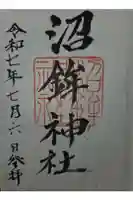 沼鉾神社
令和七年七月六日参拝